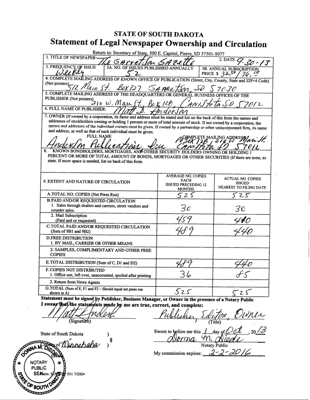 STATE OF SOUTH DAKOTA
Statement of Legal Newspaper Ownership and Circulation
Return to: Secretary of State, 500 E. Capitol, Pierre, SD 57501-5077
1. TITLE OF NEWSPAPER The Garretson Gazette
2. DATE 9-30-13
3. FREQUENCY OF ISSUE Weekly
3A. NO. OF ISSUES PUBLISHED ANNUALLY 52
3B. ANNUAL SUBSCRIPTION PRICE $
4. COMPLETE MAILING ADDRESS OF KNOWN OFFICE OF PUBLICATION (Street, City, County, State and ZIP+4 Code)
(Not printer) Main St. Box 327 Garretson, SD 57030
5. COMPLETE MAILING ADDRESS OF THE HEADQUARTERS OR GENERAL BUSINESS OFFICES OF THE
PUBLISHER (Not printer) 210 W. Main St, Box 128, Canistota SD 57012
6. FULL NAME OF PUBLISHER: Matt Anderson
7. OWNER (If owned by a corporation, its name and address must be stated and list on the back of this form the names and
addresses of stockholders owning or holding 1 percent or more of total amount of stock. If not owned by a corporation, the
names and addresses of the individual owners must be given. If owned by a partnership or other unincorporated firm, its name
and address, as well as that of each individual must be given.
FULL NAME
COMPLETE MAILING ADDRESS
Anderson Publications, Inc
Box 128, 210 W Main St.
Canistota SD 57012
8. KNOWN BONDHOLDERS, MORTGAGES, AND OTHER SECURITY HOLDERS OWNING OR HOLDING 1
PERCENT OR MORE OF TOTAL AMOUNT OF BONDS, MORTGAGES OR OTHER SECURITIES (If there are none, so
state. If more space is needed, list on back of this form.
9. EXTENT AND NATURE OF CIRCULATION
AVERAGE NO. COPIES EACH ISSUED PRECEDING 12 MONTHS
ACTUAL NO. COPIES ISSUED NEAREST TO FILING DATE
A. TOTAL NO. COPIES (Net Press Run) 525 525
B. PAID AND/OR REQUESTED CIRCULATION
1. Sales through dealers and carriers, street vendors and
counter sales 30 30
2. Mail Subscription
(Paid and or requested) 459 410
C. TOTAL PAID AND/OR REQUESTED CIRCULATION
(Sum of 9B1 and 9B2) 489 440
D. FREE DISTRIBUTION
1. BY MAIL, CARRIER OR OTHER MEANS
2. SAMPLES, COMPLIMENTARY AND OTHER FREE
COPIES
E. TOTAL DISTRIBUTION (Sum of C, D1 and D2) 489 440
F. COPIES NOT DISTRIBUTED
1. Office use, left over, unaccounted, spoiled after printing 36 85
2. Return from News Agents
G. TOTAL (Sum of E, F1 and F2 - Should equal net press run
shown in A) 525 525
Statement must be signed by Publisher, Business Manager, or Owner in the presence of a Notary Public
I swear that the statements made by me are true, correct, and complete:
(Signature)
Publisher, Editor, Owner
(Title)
State of South Dakota )
Minnehaha )
Sworn to before me this 1 day of Oct, 2013
Notary Public
My commission expires: 2-2-2016
NOTARY
PUBLIC
SEAL
SOUTH DAKOTA